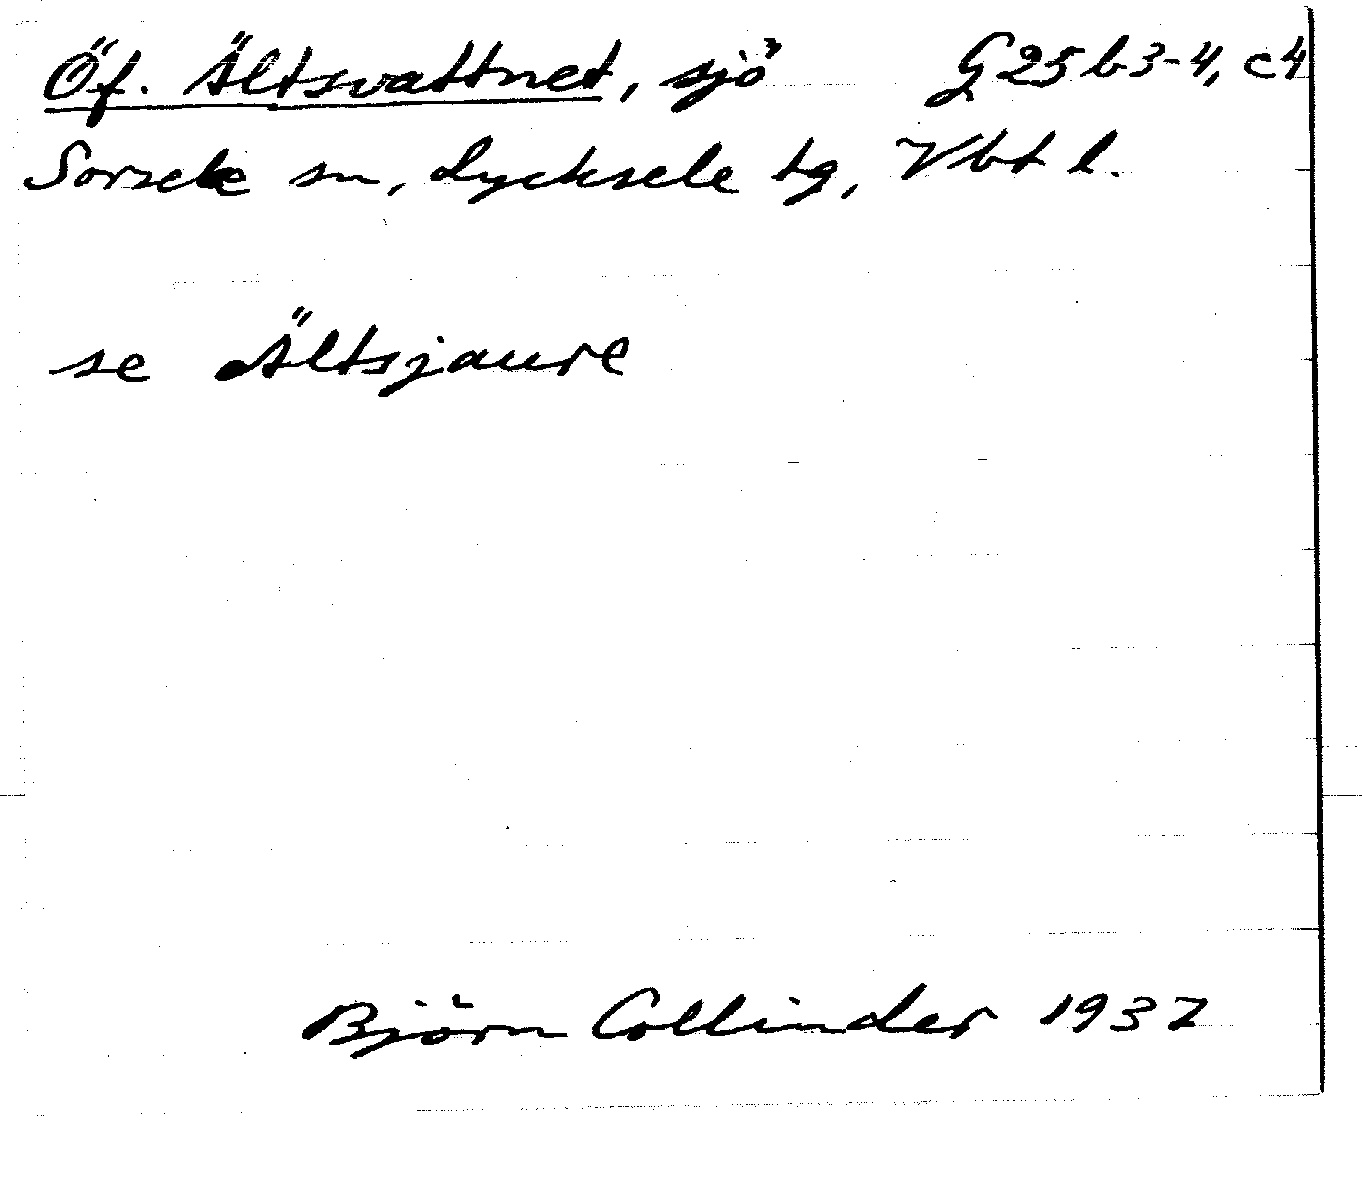 Öf. Ältsvattnet, sjö G 25 b 3-4, c 4
Sorsele sn, Lycksele tg, Vbt l.
se Ältsjaure
Björn Collinder 1937